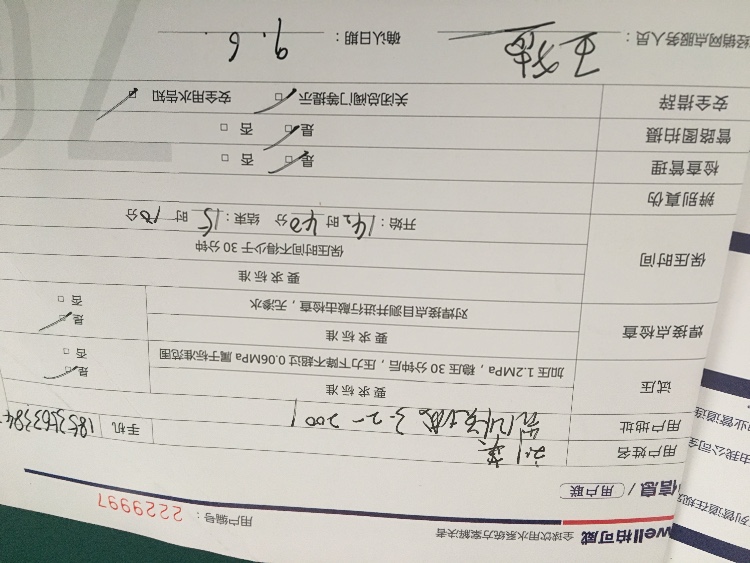 well柏可威 全球饮用水系统方案解决者
信息 / 用户联 用户编号：2229997
用户姓名
用户地址 3-2-2001 手机
试压 要求标准
加压1.2MPa，稳压30分钟后，压力下降不超过0.06MPa属于标准范围 是□ 否□
焊接点检查 要求标准
对焊接点目测并进行敲击检查，无渗水 是□ 否□
保压时间 要求标准
保压时间不得少于30分钟
开始：14时40分 结束：15时10分
辨别真伪
检查管理 是□ 否□
管路图拍摄 是□ 否□
安全措辞 关闭总阀门等提示□ 安全用水告知□
经销网点服务人员： 确认日期：9.6
列管道在规
由我公司全
业管道连